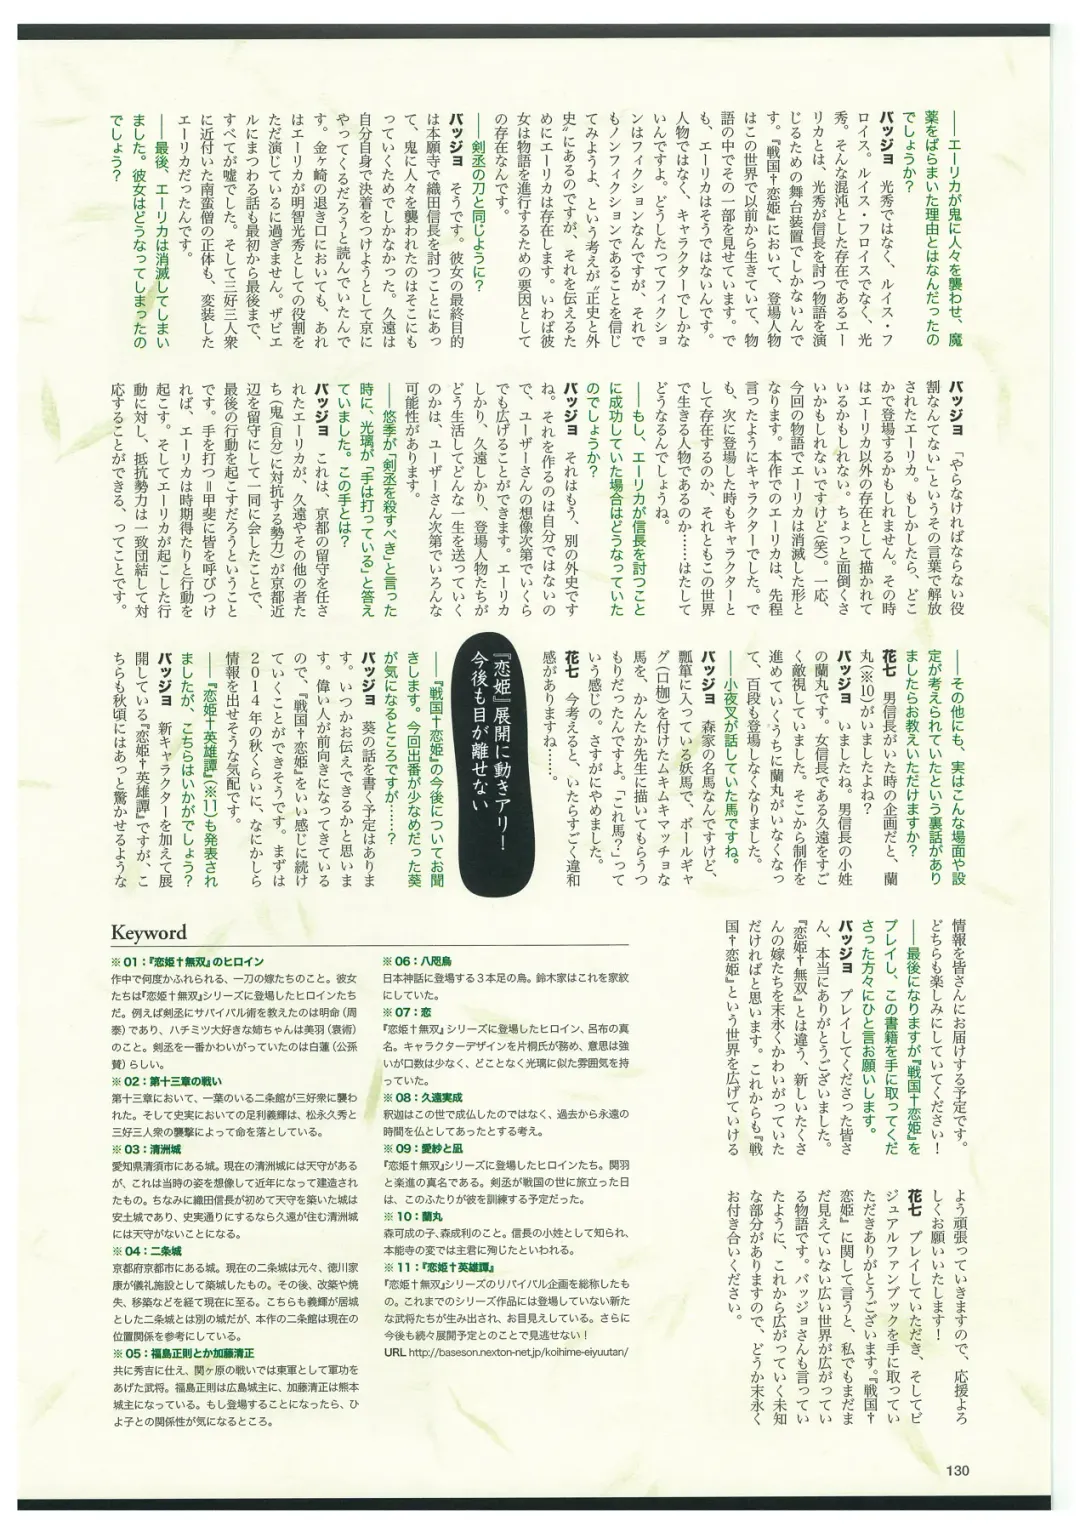 ――エーリカが鬼に人々を襲わせ、魔
薬をばらまいた理由とはなんだったの
でしょうか？
バッジョ　光秀ではなく、ルイス・フ
ロイス。ルイス・フロイスでなく、光
秀。そんな混沌とした存在であるエー
リカとは、光秀が信長を討つ物語を演
じるための舞台装置でしかないんで
す。『戦国†恋姫』において、登場人物
はこの世界で以前から生きていて、物
語の中でその一部を見せています。で
も、エーリカはそうではないんです。
人物ではなく、キャラクターでしかな
いんですよ。どうしたってフィクショ
ンはフィクションなんですが、それで
もノンフィクションであることを信じ
てみようよ、という考えが〝正史と外
史〟にあるのですが、それを伝えるた
めにエーリカは存在します。いわば彼
女は物語を進行するための要因として
の存在なんです。
――剣丞の刀と同じように？
バッジョ　そうです。彼女の最終目的
は本願寺で織田信長を討つことにあっ
て、鬼に人々を襲われたのはそこにも
っていくためでしかなかった。久遠は
自分自身で決着をつけようとして京に
やってくるだろうと読んでいたんで
す。金ヶ崎の退き口においても、あれ
はエーリカが明智光秀としての役割を
ただ演じているに過ぎません。ザビエ
ルにまつわる話も最初から最後まで、
すべてが嘘でした。そして三好三人衆
に近付いた南蛮僧の正体も、変装した
エーリカだったんです。
――最後、エーリカは消滅してしまい
ました。彼女はどうなってしまったの
でしょう？
バッジョ　「やらなければならない役
割なんてない」というその言葉で解放
されたエーリカ。もしかしたら、どこ
かで登場するかもしれません。その時
はエーリカ以外の存在として描かれて
いるかもしれない。ちょっと面倒くさ
いかもしれないですけど（笑）。一応、
今回の物語でエーリカは消滅した形と
なります。本作でのエーリカは、先程
言ったようにキャラクターでした。で
も、次に登場した時もキャラクターと
して存在するのか、それともこの世界
で生きる人物であるのか……はたして
どうなるんでしょうね。
――もし、エーリカが信長を討つこと
に成功していた場合はどうなっていた
のでしょうか？
バッジョ　それはもう、別の外史です
ね。それを作るのは自分ではないの
で、ユーザーさんの想像次第でいくら
でも広げることができます。エーリカ
しかり、久遠しかり、登場人物たちが
どう生活してどんな一生を送っていく
のかは、ユーザーさん次第でいろんな
可能性があります。
――悠季が「剣丞を殺すべき」と言った
時に、光璃が「手は打っている」と答え
ていました。この手とは？
バッジョ　これは、京都の留守を任さ
れたエーリカが、久遠やその他の者た
ち（鬼（自分）に対抗する勢力）が京都近
辺を留守にして一同に会したことで、
最後の行動を起こすだろうということ
です。手を打つ＝甲斐に皆を呼びつけ
れば、エーリカは時期得たりと行動を
起こす。そしてエーリカが起こした行
動に対し、抵抗勢力は一致団結して対
応することができる、ってことです。
――その他にも、実はこんな場面や設
定が考えられていたという裏話があり
ましたらお教えいただけますか？
花七　男信長がいた時の企画だと、蘭
丸（※10）がいましたよね？
バッジョ　いましたね。男信長の小姓
の蘭丸です。女信長である久遠をすご
く敵視していました。そこから制作を
進めていくうちに蘭丸がいなくなっ
て、百段も登場しなくなりました。
――小夜叉が話していた馬ですね。
バッジョ　森家の名馬なんですけど、
瓢箪に入っている妖馬で、ボールギャ
グ（口枷）を付けたムキムキマッチョな
馬を、かんたか先生に描いてもらうつ
もりだったんですよ。「これ馬？」って
いう感じの。さすがにやめました。
花七　今考えると、いたらすごく違和
感がありますね……。
『恋姫』展開に動きアリ！
今後も目が離せない
――『戦国†恋姫』の今後についてお聞
きします。今回出番が少なめだった葵
が気になるところですが……？
バッジョ　葵の話を書く予定はありま
す。いつかお伝えできるかと思いま
す。偉い人が前向きになってきている
ので、『戦国†恋姫』をいい感じに続け
ていくことができそうです。まずは
2014年の秋くらいに、なにかしら
情報を出せそうな気配です。
――『恋姫†英雄譚』（※11）も発表され
ましたが、こちらはいかがでしょう？
バッジョ　新キャラクターを加えて展
開している『恋姫†英雄譚』ですが、こ
ちらも秋頃にはあっと驚かせるような
情報を皆さんにお届けする予定です。
どちらも楽しみにしていてください！
――最後になりますが『戦国†恋姫』を
プレイし、この書籍を手に取ってくだ
さった方々にひと言お願いします。
バッジョ　プレイしてくださった皆さ
ん、本当にありがとうございました。
『恋姫†無双』とは違う、新しいたくさ
んの嫁たちを末永くかわいがっていた
だければと思います。これからも『戦
国†恋姫』という世界を広げていける
よう頑張っていきますので、応援よろ
しくお願いいたします！
花七　プレイしていただき、そしてビ
ジュアルファンブックを手に取ってい
ただきありがとうございます。『戦国†
恋姫』に関して言うと、私でもまだま
だ見えていない広い世界が広がってい
る物語です。バッジョさんも言ってい
たように、これから広がっていく未知
な部分がありますので、どうか末永く
お付き合いください。
Keyword
※01：『恋姫†無双』のヒロイン
作中で何度かふれられる、一刀の嫁たちのこと。彼女
たちは『恋姫†無双』シリーズに登場したヒロインたち
だ。例えば剣丞にサバイバル術を教えたのは明命（周
泰）であり、ハチミツ大好きな姉ちゃんは美羽（袁術）
のこと。剣丞を一番かわいがっていたのは白蓮（公孫
賛）らしい。
※02：第十三章の戦い
第十三章において、一葉のいる二条館が三好衆に襲わ
れた。そして史実においての足利義輝は、松永久秀と
三好三人衆の襲撃によって命を落としている。
※03：清洲城
愛知県清須市にある城。現在の清洲城には天守がある
が、これは当時の姿を想像して近年になって建造され
たもの。ちなみに織田信長が初めて天守を築いた城は
安土城であり、史実通りにするなら久遠が住む清洲城
には天守がないことになる。
※04：二条城
京都府京都市にある城。現在の二条城は元々、徳川家
康が儀礼施設として築城したもの。その後、改築や焼
失、移築などを経て現在に至る。こちらも義輝が居城
とした二条城とは別の城だが、本作の二条館は現在の
位置関係を参考にしている。
※05：福島正則とか加藤清正
共に秀吉に仕え、関ヶ原の戦いでは東軍として軍功を
あげた武将。福島正則は広島城主に、加藤清正は熊本
城主になっている。もし登場することになったら、ひ
よ子との関係性が気になるところ。
※06：八咫烏
日本神話に登場する３本足の鳥。鈴木家はこれを家紋
にしていた。
※07：恋
『恋姫†無双』シリーズに登場したヒロイン、呂布の真
名。キャラクターデザインを片桐氏が務め、意思は強
いが口数は少なく、どことなく光璃に似た雰囲気を持
っていた。
※08：久遠実成
釈迦はこの世で成仏したのではなく、過去から永遠の
時間を仏としてあったとする考え。
※09：愛紗と凪
『恋姫†無双』シリーズに登場したヒロインたち。関羽
と楽進の真名である。剣丞が戦国の世に旅立った日
は、このふたりが彼を訓練する予定だった。
※10：蘭丸
森可成の子、森成利のこと。信長の小姓として知られ、
本能寺の変では主君に殉じたといわれる。
※11：『恋姫†英雄譚』
『恋姫†無双』シリーズのリバイバル企画を総称したも
の。これまでのシリーズ作品には登場していない新た
な武将たちが生み出され、お目見えしている。さらに
今後も続々展開予定とのことで見逃せない！
URL http://baseson.nexton-net.jp/koihime-eiyuutan/
130